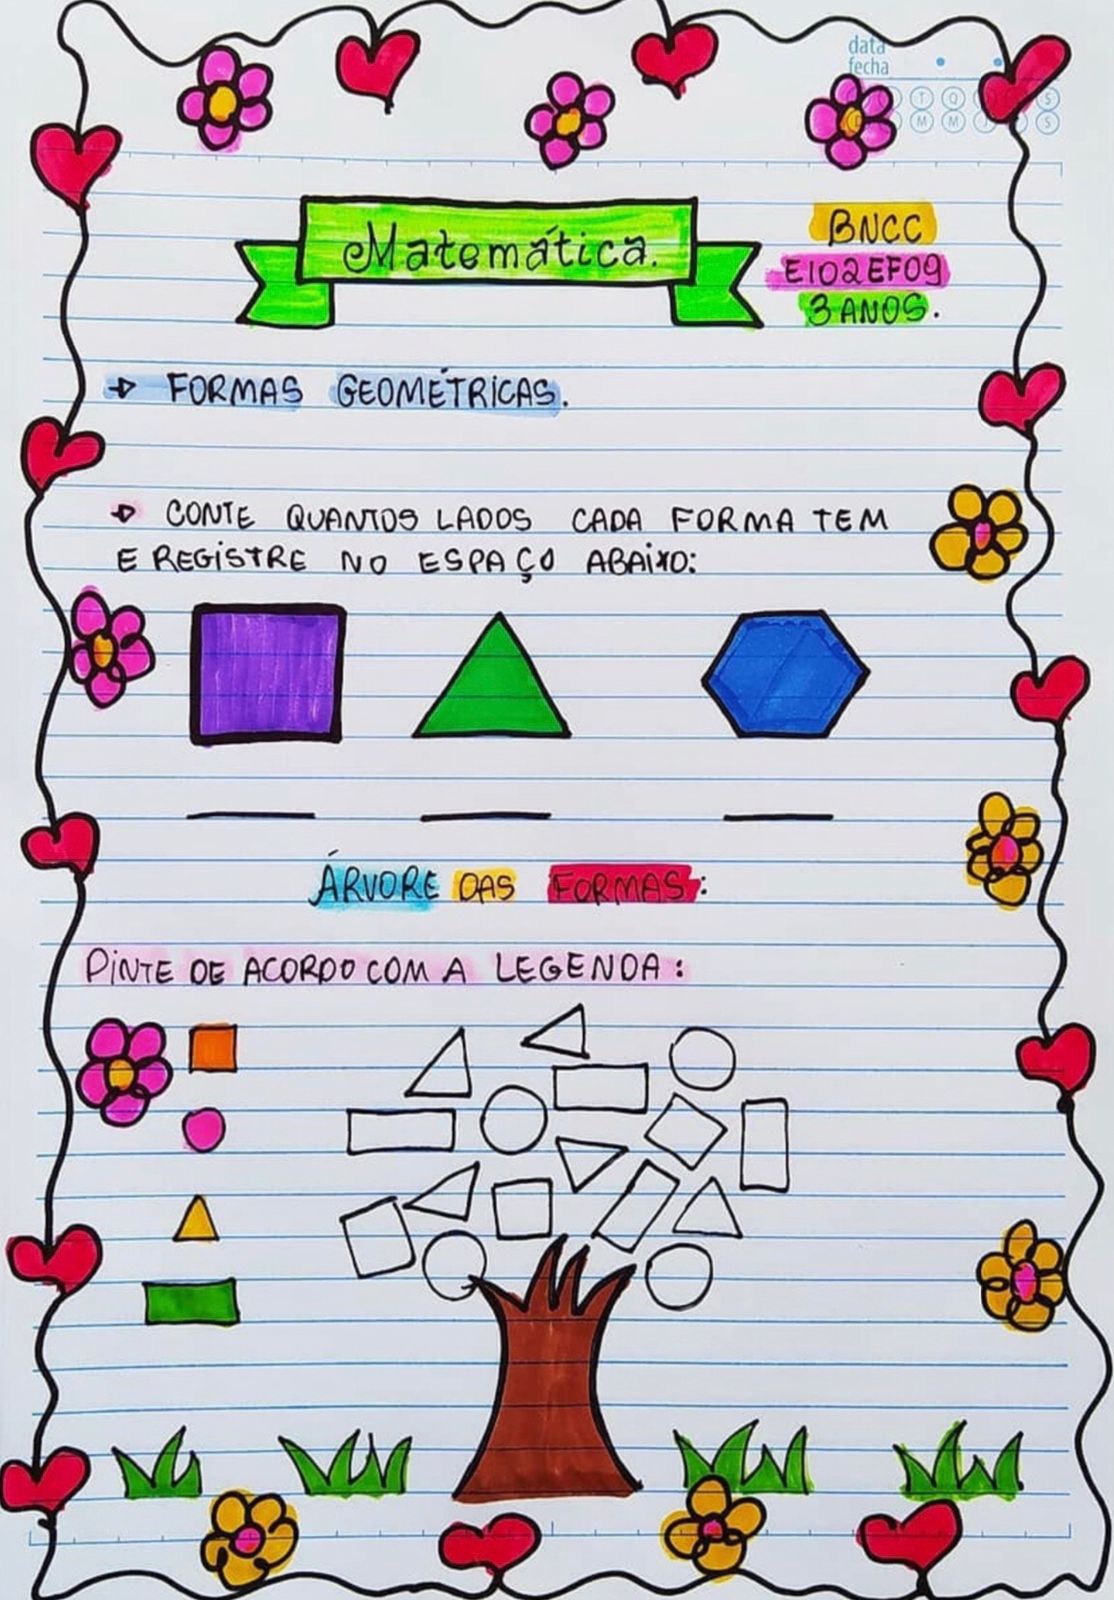 data
fecha
Matemática.
BNCC
EI02EF09
3 ANOS.
FORMAS GEOMÉTRICAS.
CONTE QUANTOS LADOS CADA FORMA TEM
E REGISTRE NO ESPAÇO ABAIXO:
ÁRVORE DAS FORMAS:
PINTE DE ACORDO COM A LEGENDA: